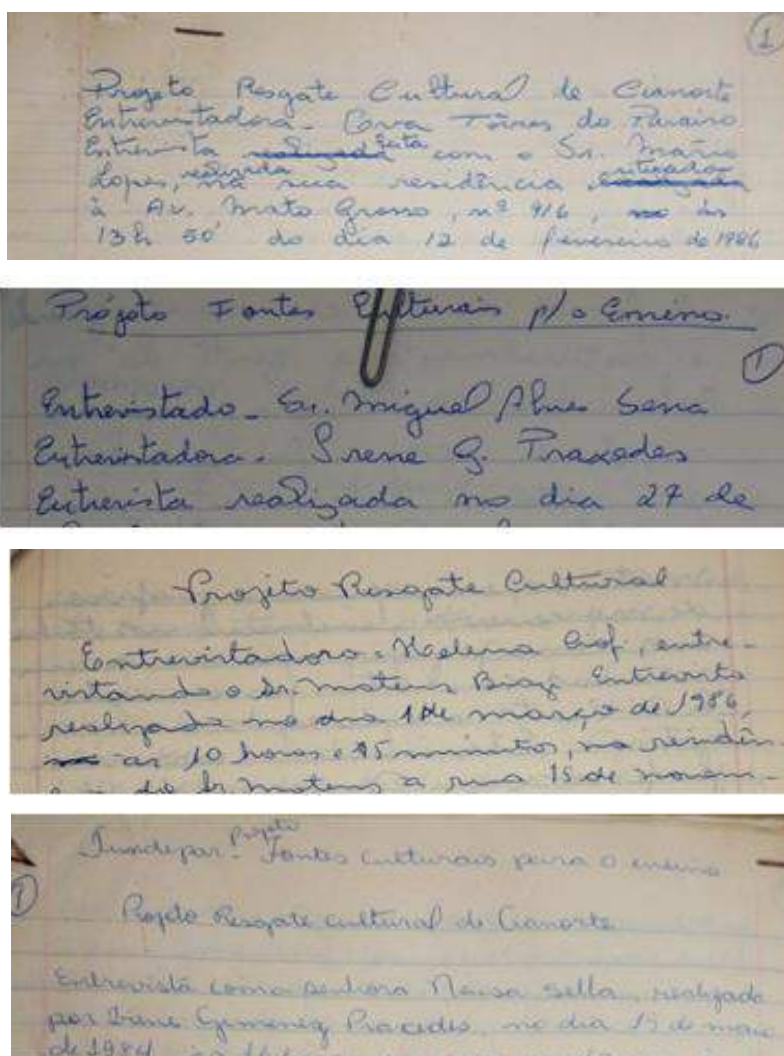 1
Projeto Resgate Cultural de Cianorte
Entrevistadora - Tôrres do Paraíso
Entrevista realizada feita com o Sr. Mário
Lopes, realizada na sua residência situada
à Av. Mato Grosso, nº 916, às
13h 50' do dia 12 de fevereiro de 1986
Projeto Fontes Culturais p/o Ensino.
1
Entrevistado - Sr. Miguel Alves Sena
Entrevistadora - Irene G. Praxedes
Entrevista realizada no dia 27 de
Projeto Resgate Cultural
Entrevistadora - Helena entre-
vistando o Sr. Mateus Entrevista
realizada no dia 1 de março de 1986,
as 10 horas e 45 minutos, na residên-
do Sr Mateus a rua 15 de novem-
Fundepar - Projeto Fontes culturais para o ensino
1
Projeto Resgate cultural de Cianorte
Entrevista com a senhora Neusa Sella, realizada
por Irene Gimenez Praxedes, no dia 15 de maio
de 1984